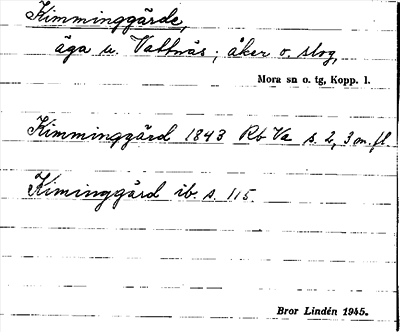 Kimminggärde,
äga u. Vattnäs; åker o. slog,
Mora sn o. tg, Kopp. l.
Kimminggärd 1843 Rb Va s. 2, 3 m. fl.
Kiminggärd ib. s. 115.
Bror Lindén 1945.